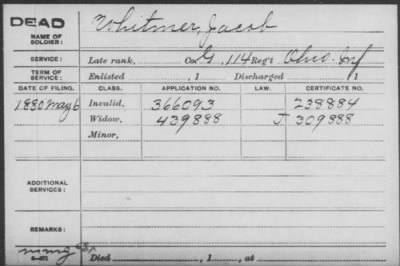 DEAD Whitmer, Jacob
NAME OF SOLDIER:
SERVICE: Late rank, Co. G, 114 Reg't Ohio Inf
TERM OF SERVICE: Enlisted , 1 Discharged , 1
DATE OF FILING. CLASS. APPLICATION NO. LAW. CERTIFICATE NO.
1880 May 6 Invalid, 366093 238884
Widow, 439888 J 309888
Minor,
ADDITIONAL SERVICES:
REMARKS:
Died , 1 , at